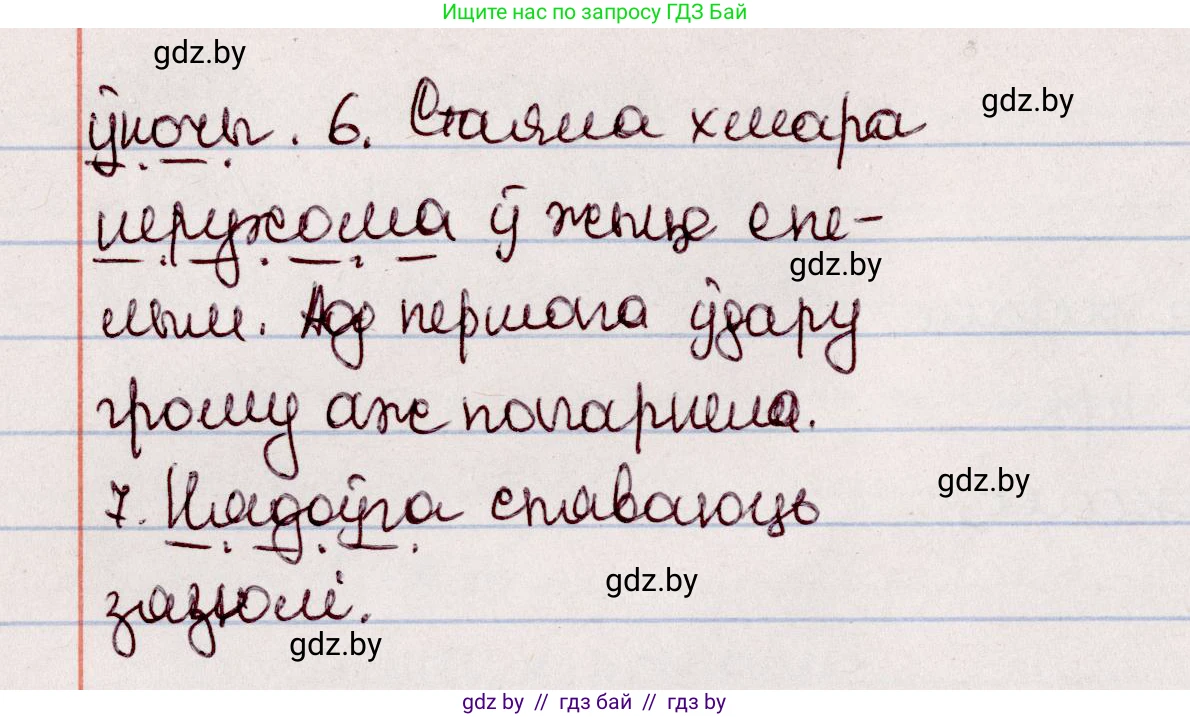 Ищите нас по запросу ГДЗ Бай
gdz.by
gdz.by
ўночы. 6. Стаяла хмара
нерухома ў жыце спе-
gdz.by
лым. Ад першага ўдару
грому аж пагарнела.
gdz.by
7. Нядоўга спяваюць
gdz.by
зязюлі.
gdz.by
gdz by // гдз бай // гдз by